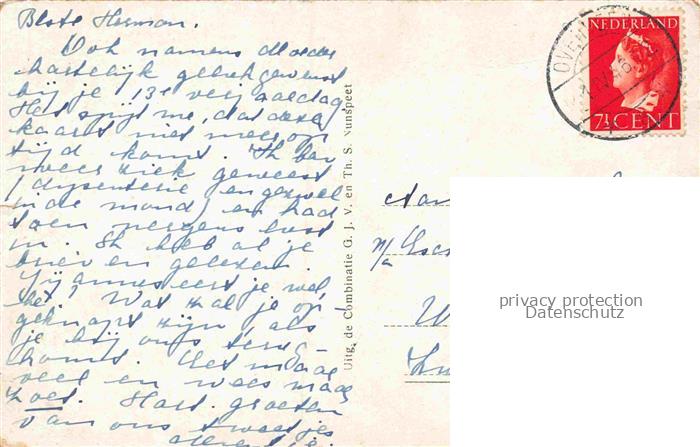 Beste Herman.
Ook namens Moeder
hartelijk gelukgewenst
bij je 13e verjaardag
Het spijt me, dat deze
kaart niet meer op
tijd komt. Ik ben
weer ziek geweest
(dysenterie en gezwel
in de mond) en had
toen nergens lust
in. Ik heb al je
brieven gelezen.
Jij annexeert je wel,
hè! Wat zal je op-
geknapt zijn, als
je bij ons terug-
komt. Eet maar
veel en wees maar
zoet. Hart. groeten
van ons tweetjes
Uitg. de Combinatie G. J. V. en Th. S. Nunspeet
NEDERLAND
7½ CENT
Aan
p/a
privacy protection
Datenschutz